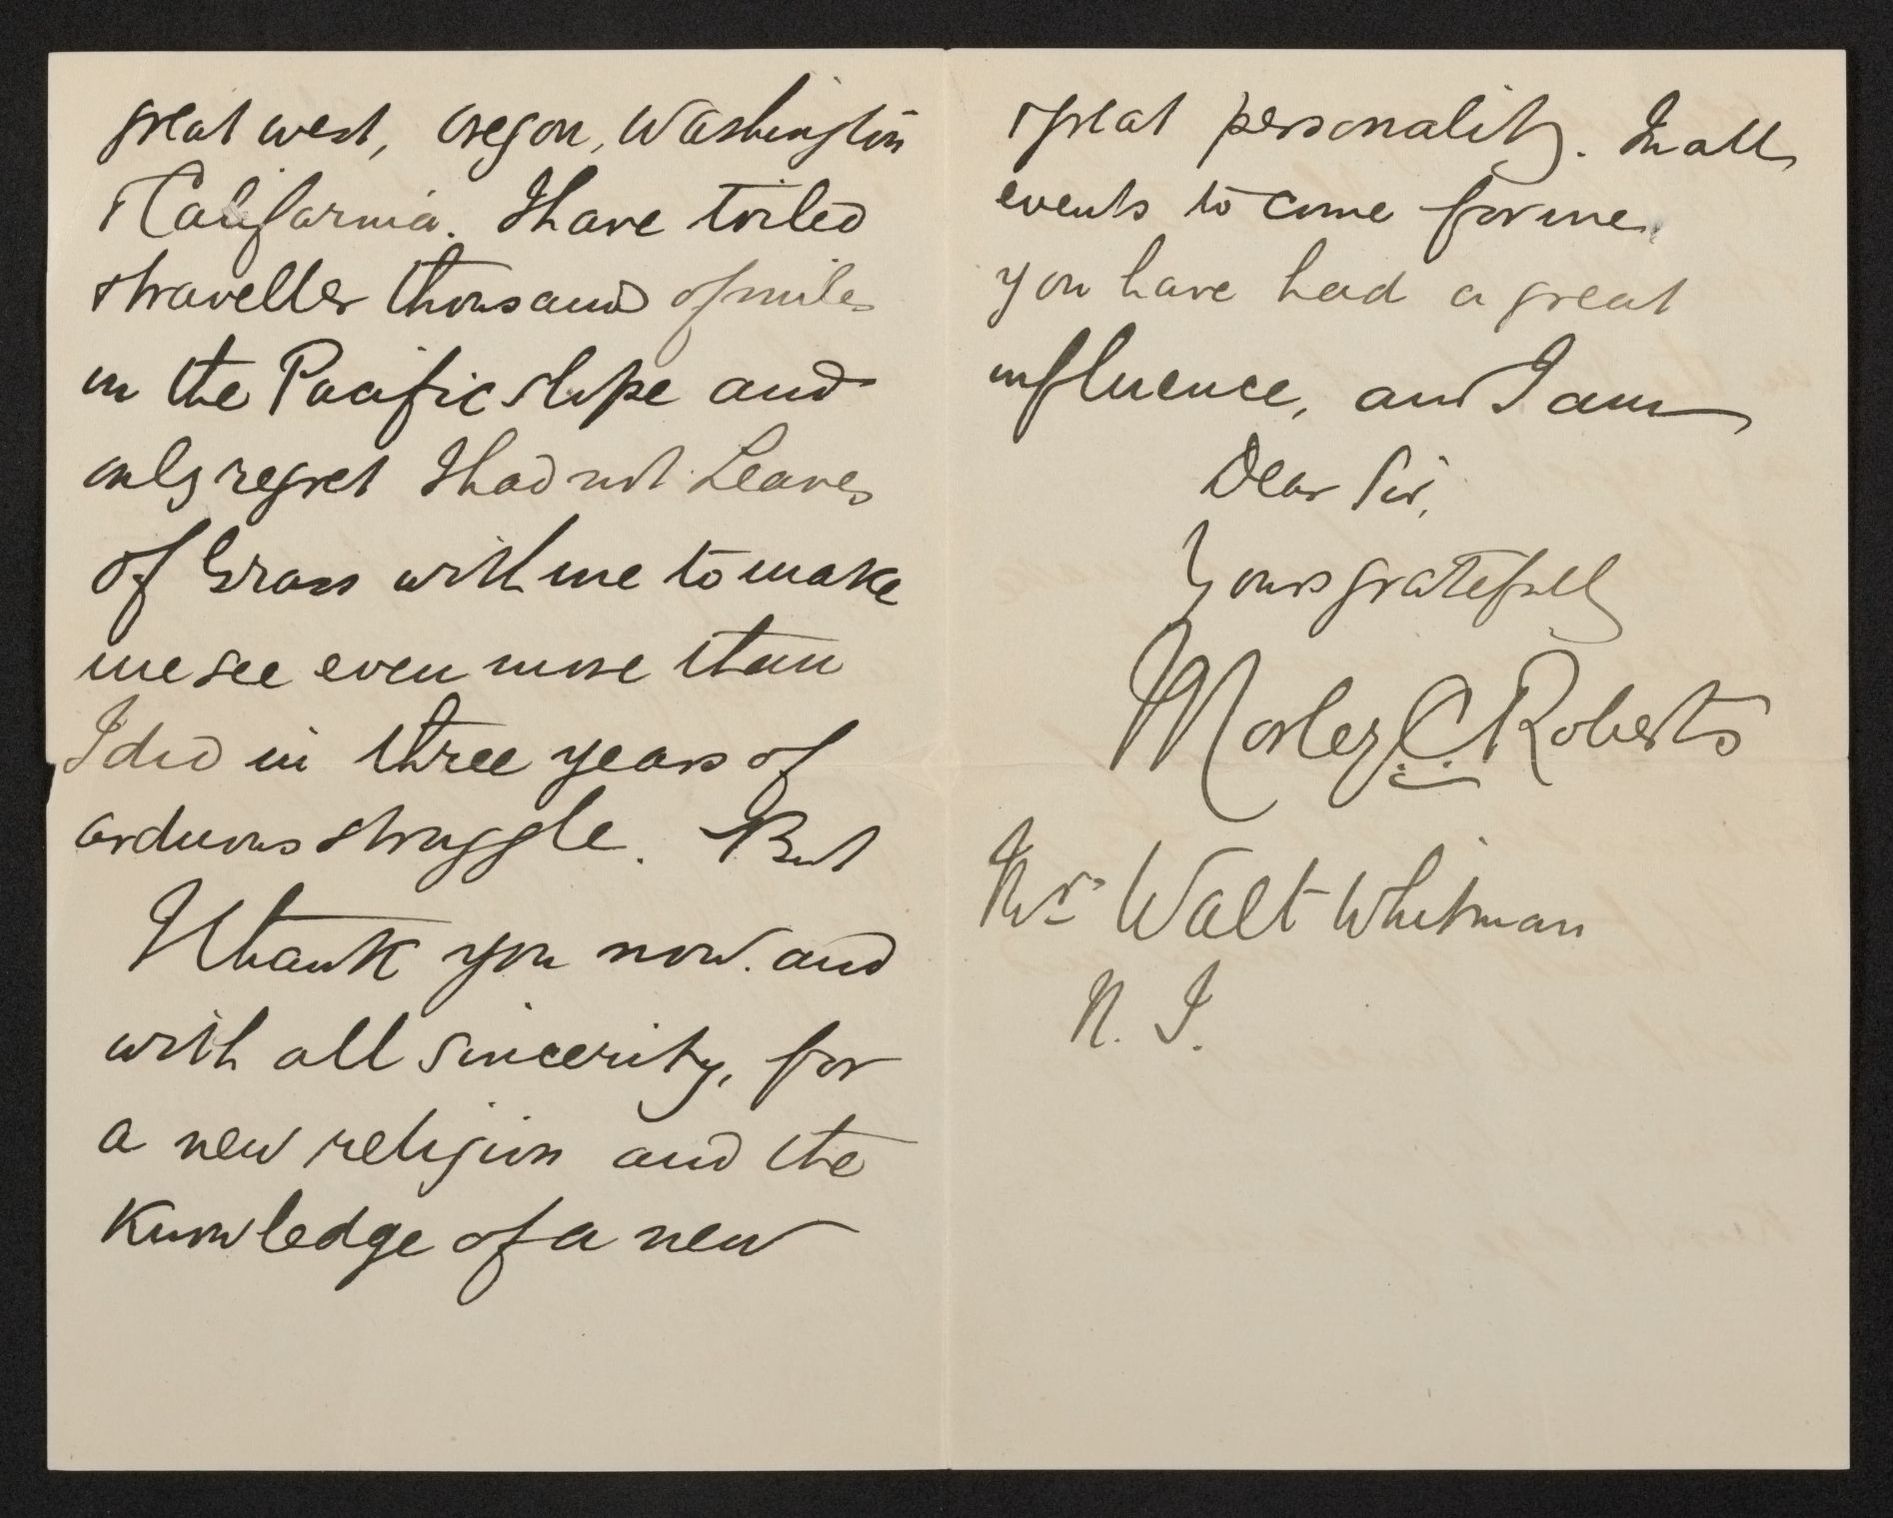 great west, Oregon, Washington
& California. I have toiled
& traveller thousand of miles
on the Pacific slope and
only regret I had not Leaves
of Grass with me to make
me see even more than
I did in three years of
arduous struggle. But
I thank you now and
with all sincerity, for
a new religion and the
knowledge of a new
& great personality. In all
events to come for me
you have had a great
influence, and I am
Dear Sir,
Yours gratefully
Morley C. Roberts
Mr Walt Whitman
N. J.